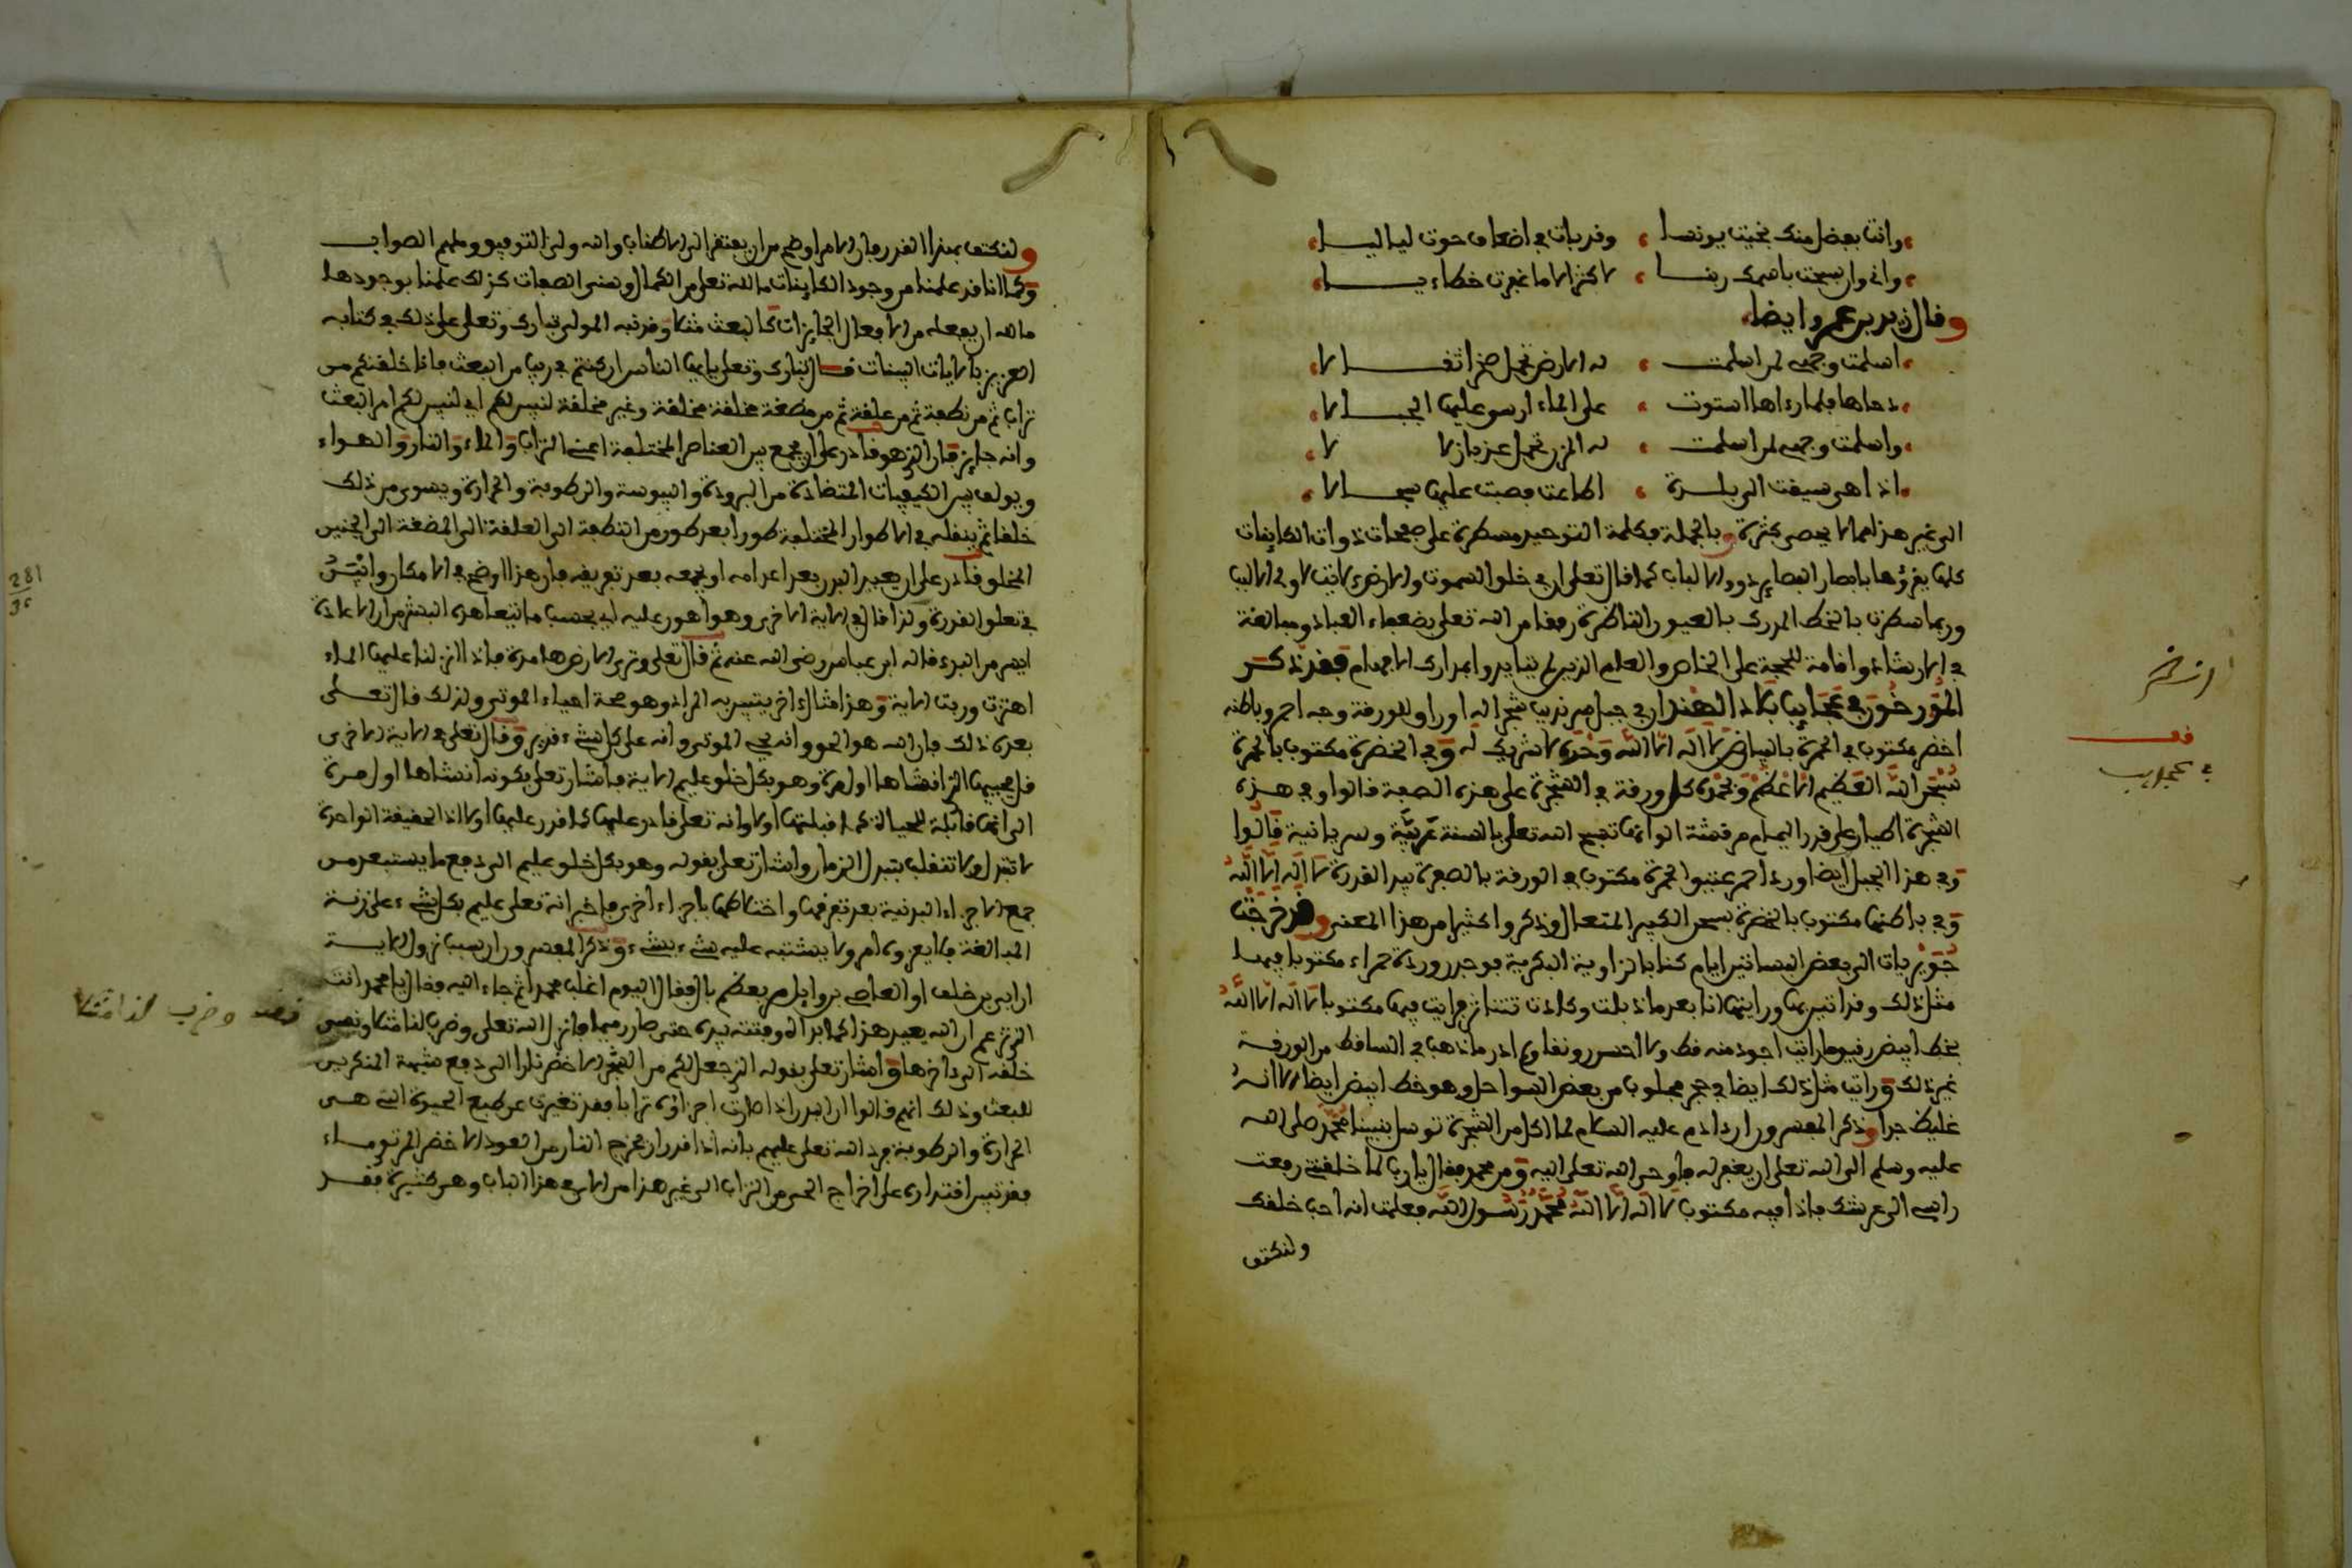 وانت بفضل منك نجيت يونسا ، وقد بات في اضعاف حوت لياليا
واني وان سبحت باسمك ربنا ، لاكثر الا ما غفرت خطاءيا
وقال زيد بن عمرو ايضا
اسلمت وجهي لمن اسلمت ، له الارض تحمل صخرا ثقالا
دحاها فلما رءاها استوت ، على الماء ارسى عليها الجبالا
واسلمت وجهي لمن اسلمت ، له المزن تحمل عذبا زلالا
اذا هي سيقت الى بلدة ، اطاعت فصبت عليها سجالا
الى غير هذا مما لا يحصى كثرة وبالجملة فكلمة التوحيد مسطرة على صفحات ذوات الكاينات
كلها يقرؤها بابصار البصاير ذووا الالباب كما قال تعلى ان في خلق السموت والارض لاايت لاولى الالبب
وربما سطرت بالخط المدرك بالعيون الناظرة رفقا من الله تعلى بضعفاء العباد ومبالغة
في الارشاد واقامة للحجة على الخاص والعام الذين لم يتايدوا بمدارك الافهام فقد ذكر
المؤرخون في عجايب بلاد الهند ان في جبل سرنديب شجرا له اوراق للورقة وجه احمر وباطنه
اخضر مكتوب في الحمرة بالبياض لا اله الا الله وحده لا شريك له وفي الخضرة مكتوب بالحمرة
سبحن الله العظيم وبحمده كل ورقة في الشجرة على هذه الصفة قالوا وفي هذه
الشجرة اطيار على قدر اليمام مرقشة الوانها تسبح الله تعلى بالسنة عربية وسريانية قالوا
وفي هذا الجبل ايضا ورد احمر عتيق الحمرة مكتوب في الورقة بالصفرة بيد القدرة لا اله الا الله
وفي باطنها مكتوب بالخضرة سبحن الكبير المتعال وذكروا كثيرا من هذا المعنى وقد خرجت
جويريات الى بعض البساتين ايام كنا بالزاوية البكرية فوجدن وردة حمراء مكتوبا فيها
مثل ذلك وقد اتين بها ورايتها انا بعد ما ذبلت وكادت تتناثر فرايت فيها مكتوبا لا اله الا الله
بخط ابيض رقيق ما رايت اجود منه قط ولا احسن رونقا ولم ادر ما ذهب في الساقط من الورقة
غير ذلك ورايت مثل ذلك ايضا في حجر مجلوب من بعض السواحل وهو خط ابيض ايضا الا انه
غليظ جدا وذكر المفسرون ان ءادم عليه السلام لما اكل من الشجرة توسل بنبينا محمد صلى الله
عليه وسلم الى الله تعلى ان يغفر له فاوحى الله تعلى اليه ومن محمد فقال يا رب لما خلقتني رفعت
راسي الى عرشك فاذا فيه مكتوب لا اله الا الله محمد رسول الله فعلمت انه احب خلقك
ولنكتف
فف
في عجايب
ولنكتف بهذا القدر فان الامر اوضح من ان يفتقر الى الاطناب والله ولى التوفيق وملهم الصواب
وكما انا قد علمنا من وجود الكاينات ما لله تعلى من الكمال وسنى الصفات كذلك علمنا بوجودها
ما له ان يفعله من الافعال الجايزات كالبعث مثلا وقد نبه المولى تبارك وتعلى على ذلك في كتابه
العزيز بالايات البينات فقال تبارك وتعلى يايها الناس ان كنتم في ريب من البعث فانا خلقنكم من
تراب ثم من نطفة ثم من علقة ثم من مضغة مخلقة وغير مخلقة لنبين لكم اي لنبين لكم امر البعث
وانه جايز فان الذي هو قادر على ان يجمع بين العناصر المختلفة اعني التراب والماء والنار والهواء
ويولف بين الكيفيات المتضادة من البرودة واليبوسة والرطوبة والحرارة ويسوى من ذلك
خلقا ثم ينقله في الاطوار المختلفة طورا بعد طور من النطفة الى العلقة الى المضغة الى الجنين
المخلق قادر على ان يعيد البدن بعد اعدامه او يجمعه بعد تفريقه فان هذا اوضح في الامكان
في تعلق القدرة ولذا قال في الاية الاخرى وهو اهون عليه اي بحسب ما تتعاهده البشر من ان الاعادة
ايسر من البدء قاله ابن عباس رضى الله عنه ثم قال تعلى وترى الارض هامدة فاذا انزلنا عليها الماء
اهتزت وربت الاية وهذا مثال ءاخر يتبين به المراد وهو صحة احياء الموتى ولذلك قال تعلى
بعد ذلك بان الله هو الحق وانه يحي الموتى وانه على كل شيء قدير وقال تعلى في الاية الاخرى
قل يحييها الذي انشاها اول مرة وهو بكل خلق عليم الاية فاشار تعلى بكونه انشاها اول مرة
الى انها قابلة للحياة كما قبلتها اولا وانه تعلى قادر عليها كما قدر عليها اولا اذ الحقيقة الواحدة
لا تتبدل ولا تتقلب بتبدل الزمان واشار تعلى بقوله وهو بكل خلق عليم الى دفع ما يستبعد من
جمع الاجزاء البدنية بعد تفرقها واختلاطها باجزاء اخرى فاخبر انه تعلى عليم بكل شيء على زنة
المبالغة فلا يعزب عنه امر ولا يشتبه عليه شيء بشيء وذكر المفسرون ان سبب نزول الاية
ان ابي بن خلف او العاصي بن وايل مر بعظم بال فقال اليوم اغلب محمدا ثم جاء اليه فقال يا محمد انت
الذي تزعم ان الله يعيد هذا كما بدا وفتته بيده حتى صار رميما فانزل الله تعلى وضرب لنا مثلا ونسى
خلقه الى ءاخرها واشار تعلى بقوله الذي جعل لكم من الشجر الاخضر نارا الى دفع شبهة المنكرين
للبعث وذلك انهم قالوا ان البدن اذا صارت اجزاؤه ترابا فقد تغيرت عن طبع الحيوة التي هي
الحرارة والرطوبة فرد الله تعلى عليهم بانه اذا قدر ان يخرج النار من العود الاخضر المرتوي ماء
فقد تبين اقتداره على اخراج الحي من التراب الى غير هذا من الاي في هذا الباب وهي كثيرة فقد
وضرب لنا مثلا
281